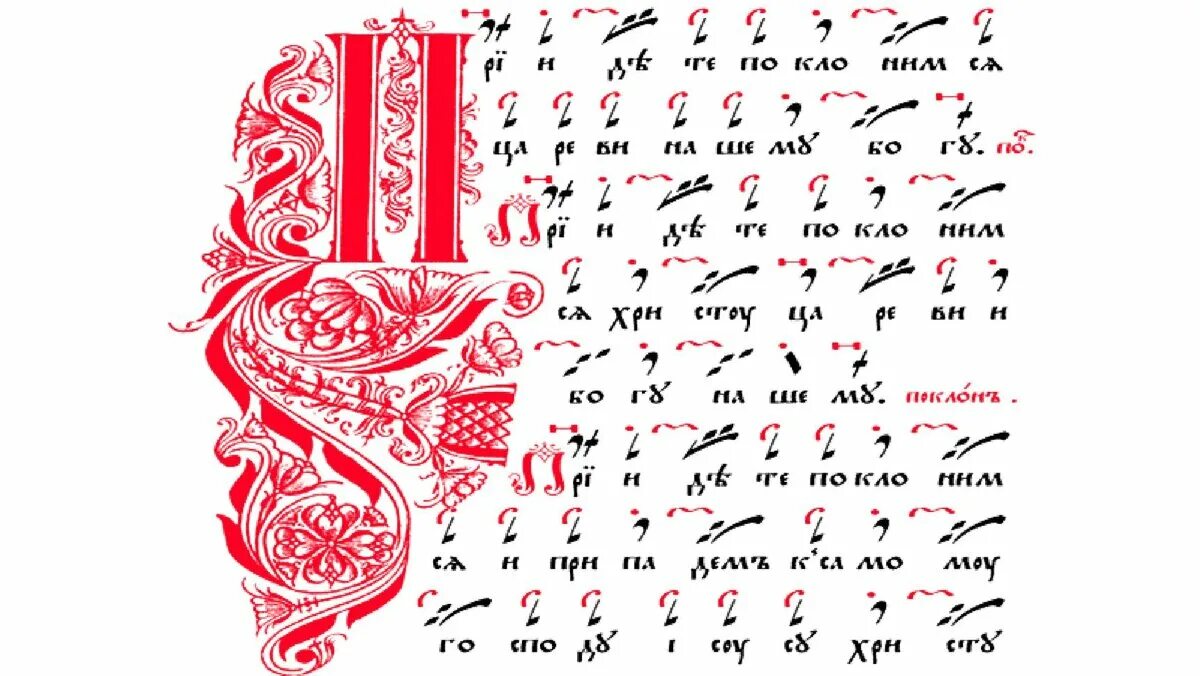 Прї и дѣ те по кло ним сѧ
ца ре ви на ше мꙋ бо гꙋ. по́к.
Прї и дѣ те по кло ним
сѧ хри стоу ца ре ви и
бо гꙋ на ше мꙋ. покло́нъ .
Прї и дѣ те по кло ним
сѧ и при па демъ к̾са мо моу
го спо дꙋ і соу сꙋ хри стꙋ